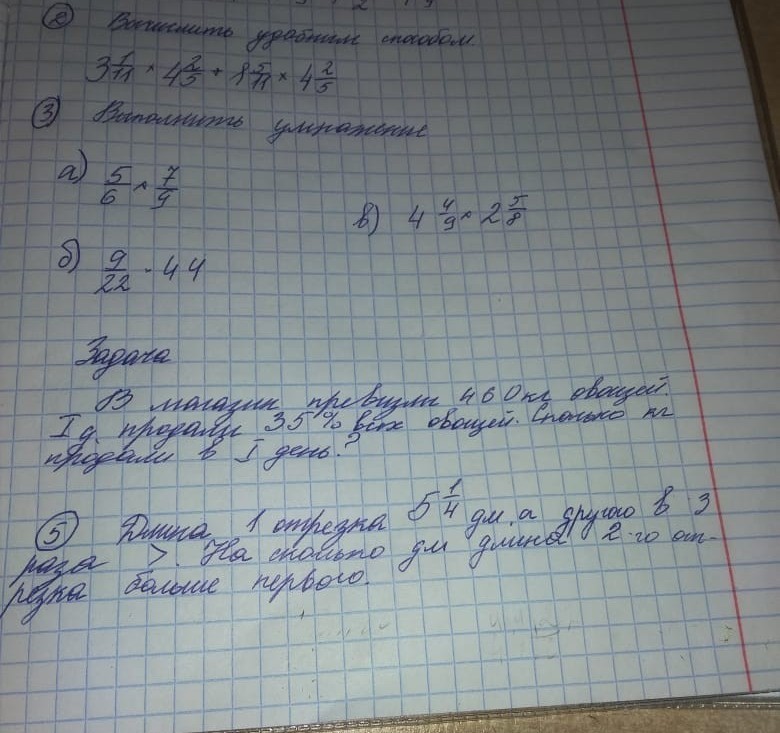 ② Вычислить удобным способом.
3 1/11 × 4 2/5 + 1 5/11 × 4 2/5
③ Выполнить умножение
а) 5/6 × 7/9
в) 4 4/9 × 2 5/8
б) 9/22 · 44
Задача
В магазин превезли 460кг овощей.
I д. продали 35% всех овощей. Сколько кг
продали в I день?
⑤ Длина 1 отрезка 5 1/4 дм, а другого в 3
раза >. На сколько дм длина 2-го от-
резка больше первого.